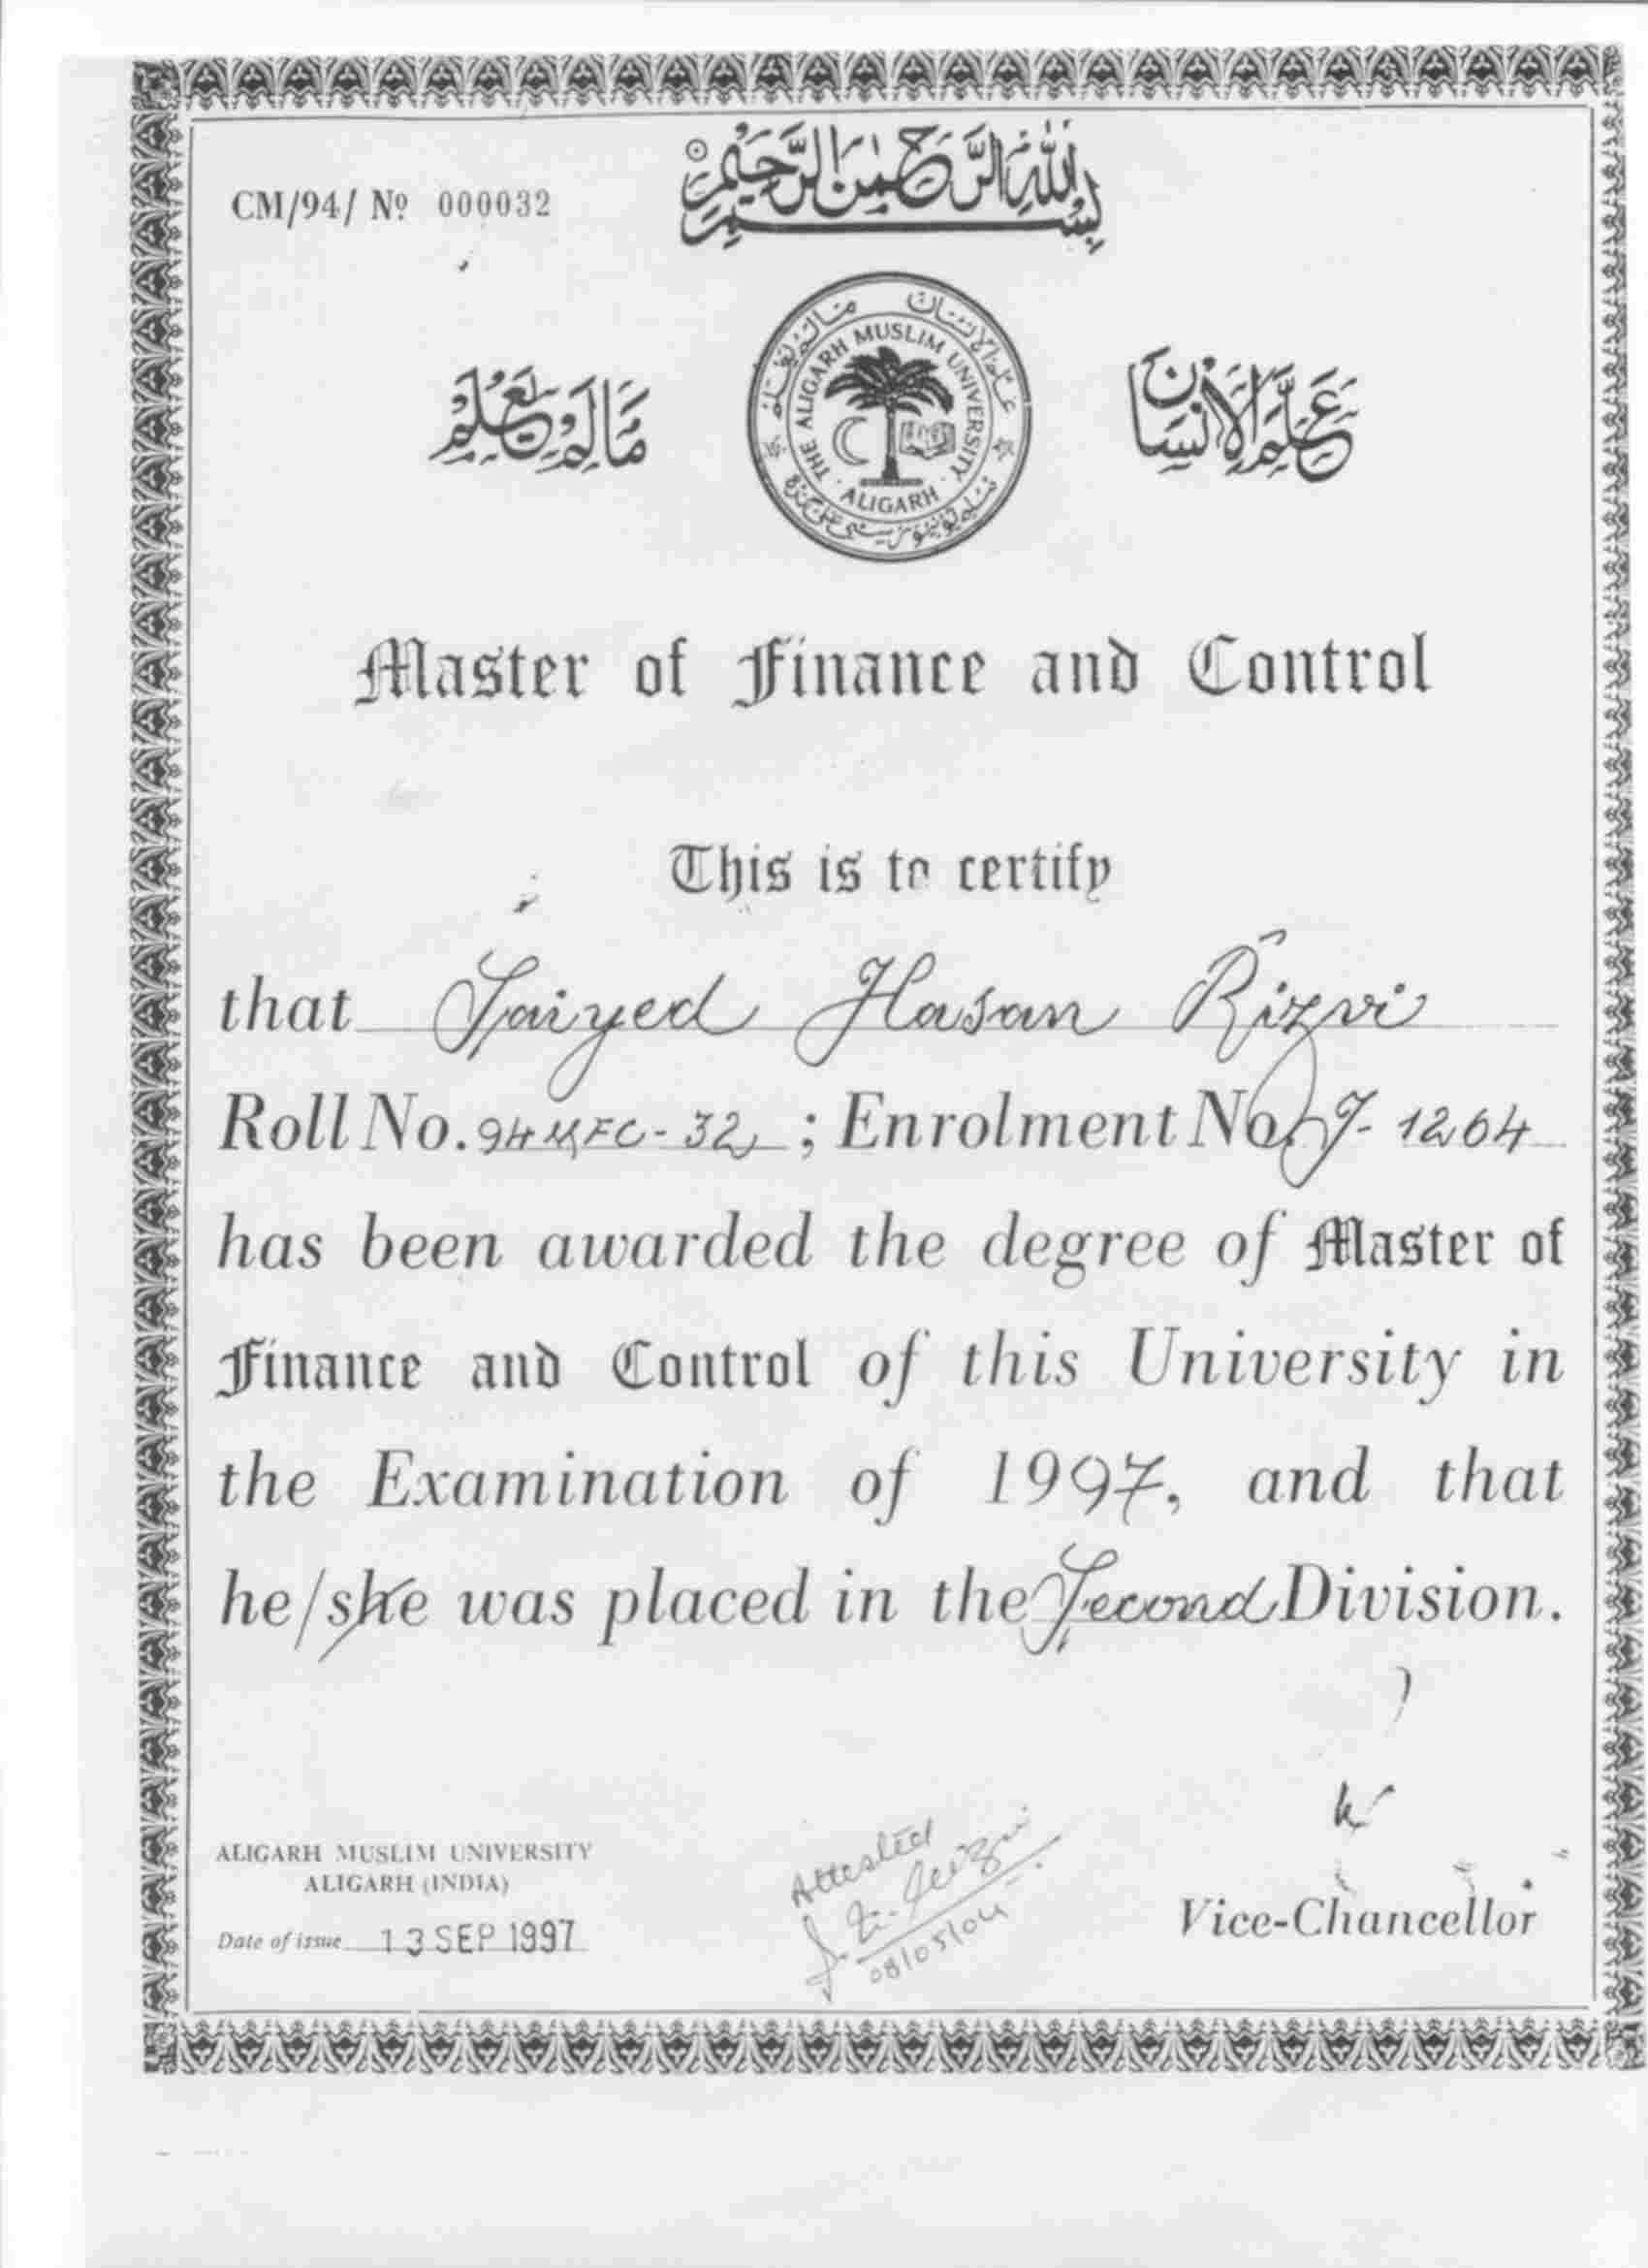 CM/94/ Nº 000032
بِسْمِ اللهِ الرَّحْمٰنِ الرَّحِيْمِ
عَلَّمَ الْاِنْسَانَ
مَا لَمْ يَعْلَمْ
علم الانسان مالم يعلم
THE ALIGARH MUSLIM UNIVERSITY
· ALIGARH ·
Master of Finance and Control
This is to certify
that Saiyed Hasan Rizvi
Roll No. 94MFC-32 ; Enrolment No. J-1264
has been awarded the degree of Master of
Finance and Control of this University in
the Examination of 1997, and that
he/she was placed in the Second Division.
ALIGARH MUSLIM UNIVERSITY
ALIGARH (INDIA)
Date of issue 13 SEP 1997
Attested
08/05/04
Vice-Chancellor